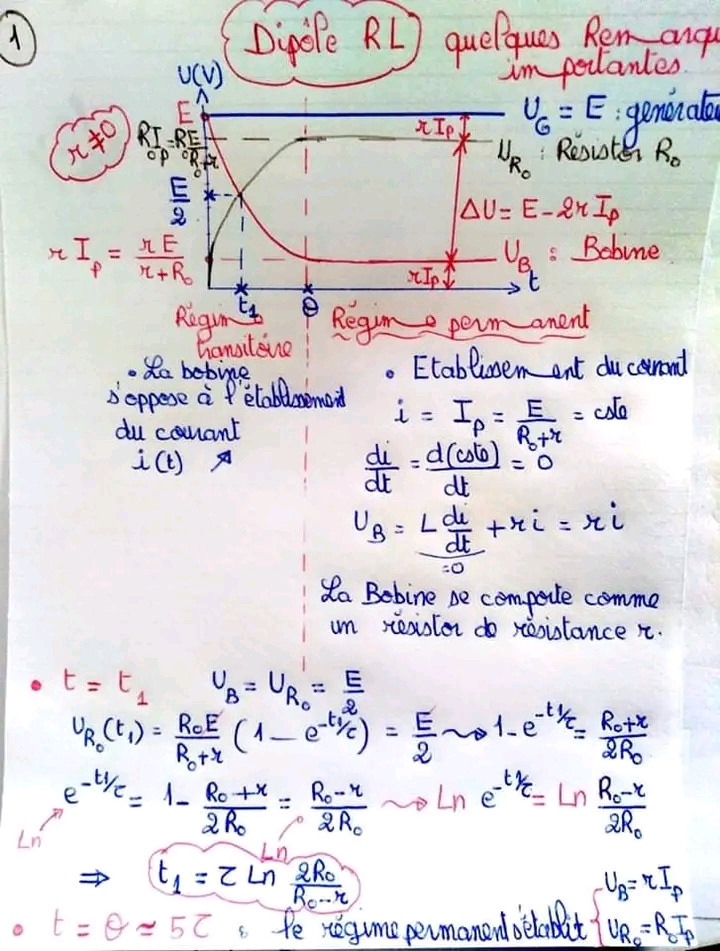 1
Dipôle RL quelques Remarqu
importantes.
U(V)
E
U_G = E : générate
r ≠ 0
R₀I_p = R₀E/(R₀+r)
rI_p
U_R₀ : Résistor R₀
E/2
ΔU = E - 2rI_p
rI_p = rE/(r+R₀)
U_B : Bobine
rI_p
t₁ θ t
Régime transitoire
Régime permanent
• La bobine
s'oppose à l'établissement
du courant
i(t) ↗
• Etablissement du courant
i = I_p = E/(R₀+r) = cste
di/dt = d(cste)/dt = 0
U_B = L di/dt + ri = ri
=0
La Bobine se comporte comme
un résistor de résistance r.
• t = t₁ U_B = U_R₀ = E/2
U_R₀(t₁) = R₀E/(R₀+r) (1 - e^(-t₁/τ)) = E/2 ⇝ 1 - e^(-t₁/τ) = (R₀+r)/(2R₀)
e^(-t₁/τ) = 1 - (R₀+r)/(2R₀) = (R₀-r)/(2R₀) ⇝ Ln e^(-t₁/τ) = Ln (R₀-r)/(2R₀)
Ln Ln
⇒ t₁ = τ Ln 2R₀/(R₀-r)
• t = θ ≃ 5τ : le régime permanent s'établit { U_B = rI_p
U_R₀ = R₀I_p